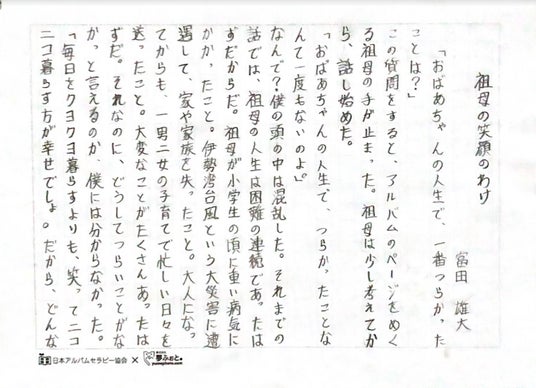 祖母の笑顔のわけ
富田 雄大
「おばあちゃんの人生で、一番つらかった
ことは？」
この質問をすると、アルバムのページをめく
る祖母の手が止まった。祖母は少し考えてか
ら、話し始めた。
「おばあちゃんの人生で、つらかったことな
んて一度もないのよ。」
なんで？僕の頭の中は混乱した。それまでの
話では、祖母の人生は困難の連続であったは
ずだからだ。祖母が小学生の頃に重い病気に
かかったこと。伊勢湾台風という大災害に遭
遇して、家や家族を失ったこと。大人になっ
てからも、一男二女の子育てで忙しい日々を
送ったこと。大変なことがたくさんあったは
ずだ。それなのに、どうしてつらいことがな
かったと言えるのか、僕には分からなかった。
「毎日をクヨクヨ暮らすよりも、笑ってニコ
ニコ暮らす方が幸せでしょ。だから、どんな
日本アルバムセラピー協会 × 夢ふぉと。